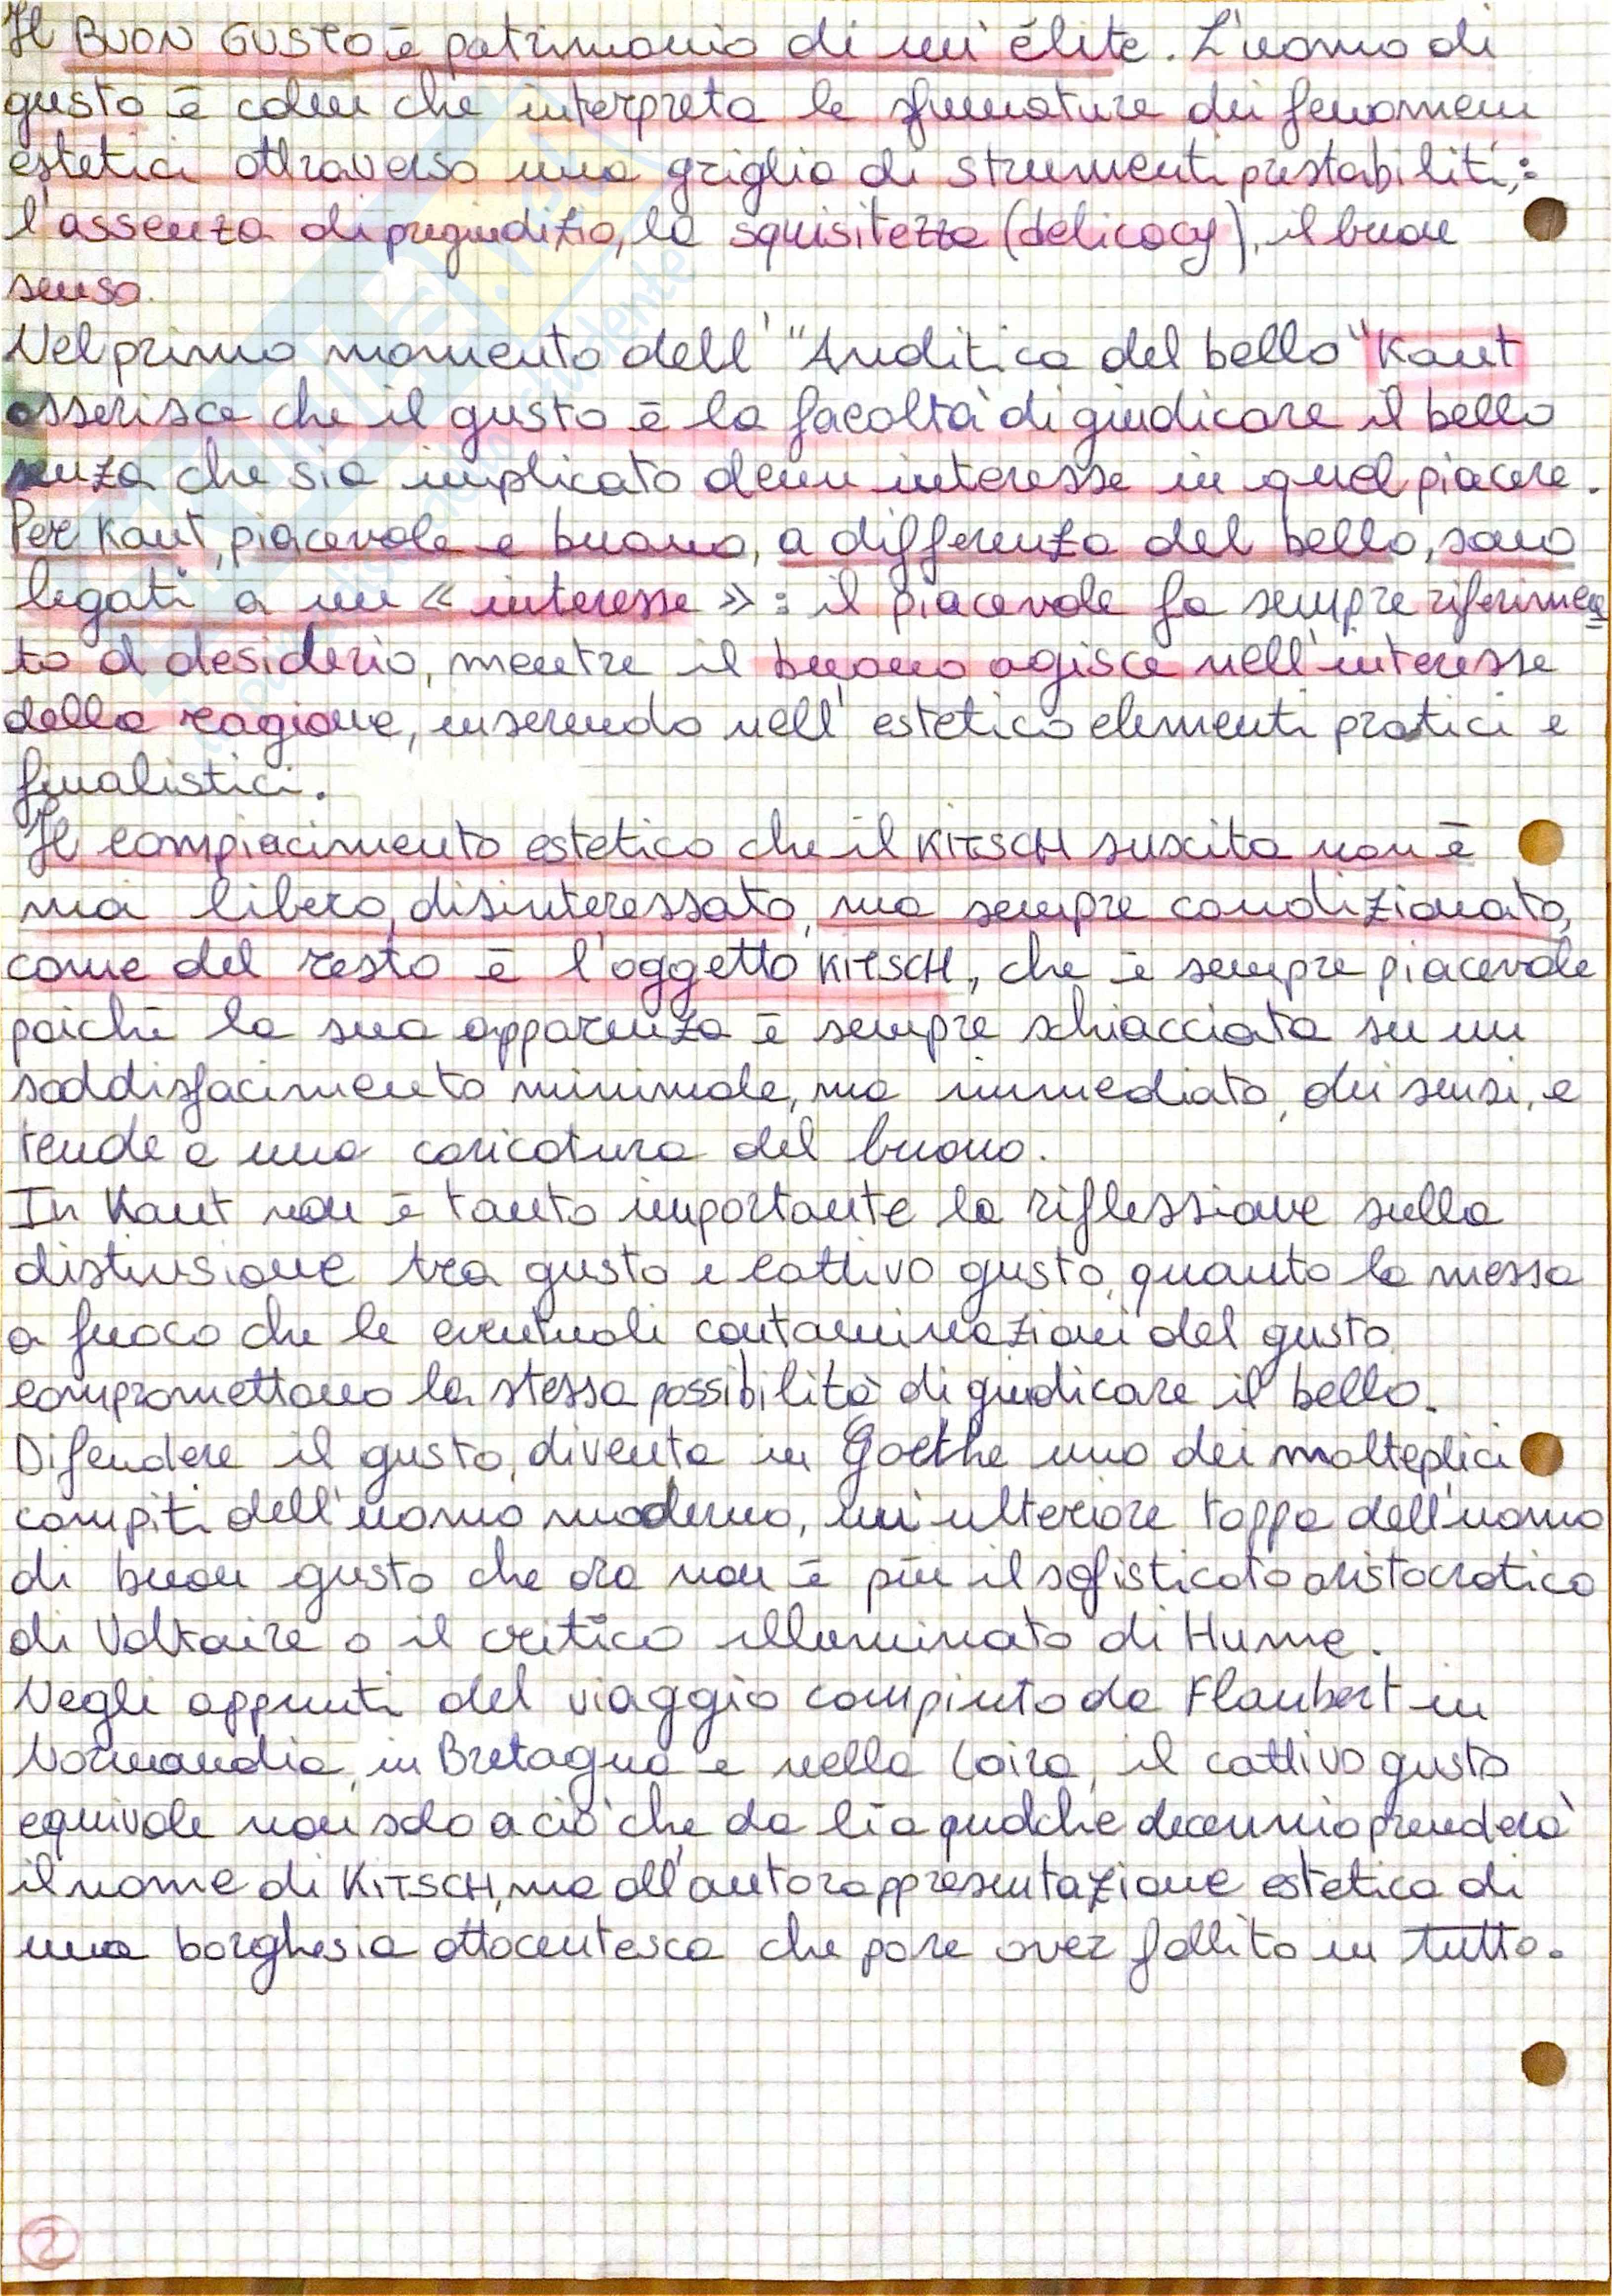 Il BUON GUSTO è patrimonio di un'élite. L'uomo di
gusto è colui che interpreta le sfumature dei fenomeni
estetici attraverso una griglia di strumenti prestabiliti,:
l'assenza di pregiudizio, la squisitezza (delicacy), il buon
senso.
Nel primo momento dell'"Analitica del bello" Kant
asserisce che il gusto è la facoltà di giudicare il bello
senza che sia implicato alcun interesse in quel piacere.
Per Kant, piacevole e buono, a differenza del bello, sono
legati a un « interesse »: il piacevole fa sempre riferimen
to al desiderio, mentre il buono agisce nell'interesse
della ragione, inserendo nell'estetico elementi pratici e
finalistici.
Il compiacimento estetico che il KITSCH suscita non è
mai libero, disinteressato, ma sempre condizionato,
come del resto è l'oggetto KITSCH, che è sempre piacevole
poiché la sua apparenza è sempre schiacciata su un
soddisfacimento minimale, ma immediato, dei sensi, e
tende a una caricatura del buono.
In Kant non è tanto importante la riflessione sulla
distinsione tra gusto e cattivo gusto, quanto la messa
a fuoco che le eventuali contaminazioni del gusto
compromettano la stessa possibilità di giudicare il bello.
Difendere il gusto, diventa in Goethe uno dei molteplici
compiti dell'uomo moderno, un'ulteriore tappa dell'uomo
di buon gusto che ora non è più il sofisticato aristocratico
di Voltaire o il critico illuminato di Hume.
Negli appunti del viaggio compiuto da Flaubert in
Normandia, in Bretagna e nella Loira, il cattivo gusto
equivale non solo a ciò che da lì a qualche decennio prenderà
il nome di KITSCH, ma all'autorappresentazione estetica di
una borghesia ottocentesca che pare aver fallito in tutto.
2